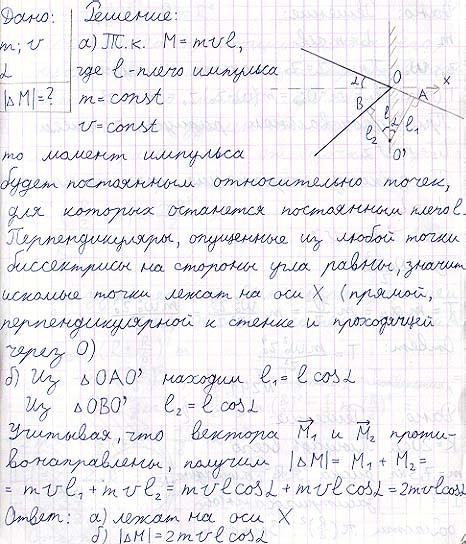 Дано: Решение:
m; v а) Т.к. M = mvl,
α где l - плечо импульса
|ΔM| = ? m = const
v = const
то момент импульса
будет постоянным относительно точек,
для которых останется постоянным плечо l.
Перпендикуляры, опущенные из любой точки
биссектрисы на стороны угла равны, значит
искомые точки лежат на оси X (прямой,
перпендикулярной к стенке и проходящей
через O)
б) Из △OAO' находим l₁ = l cosα
Из △OBO' l₂ = l cosα
Учитывая, что вектора M⃗₁ и M⃗₂ проти-
вонаправлены, получим |ΔM| = M₁ + M₂ =
= mvl₁ + mvl₂ = mvl cosα + mvl cosα = 2mvl cosα
Ответ: а) лежат на оси X
б) |ΔM| = 2mvl cosα
α O x
B A
l α l₁
l₂
O'